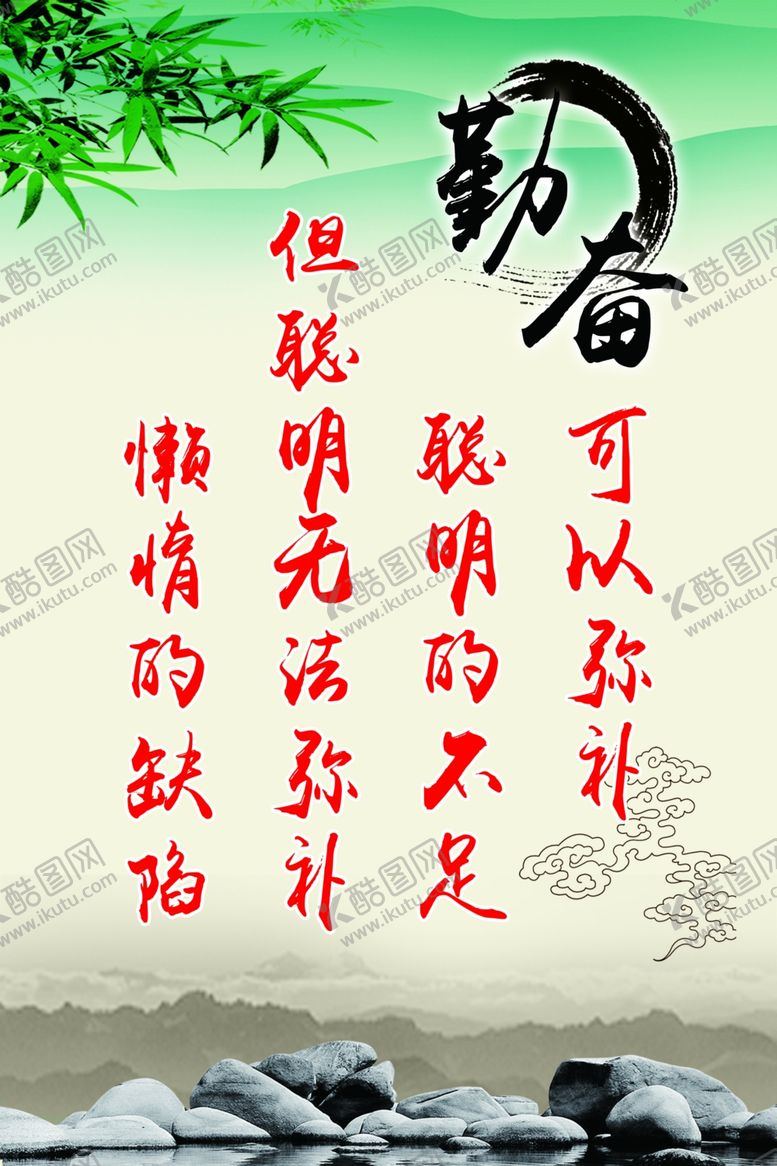 勤奋
可以弥补
聪明的不足
但聪明无法弥补
懒惰的缺陷
酷图网
www.ikutu.com